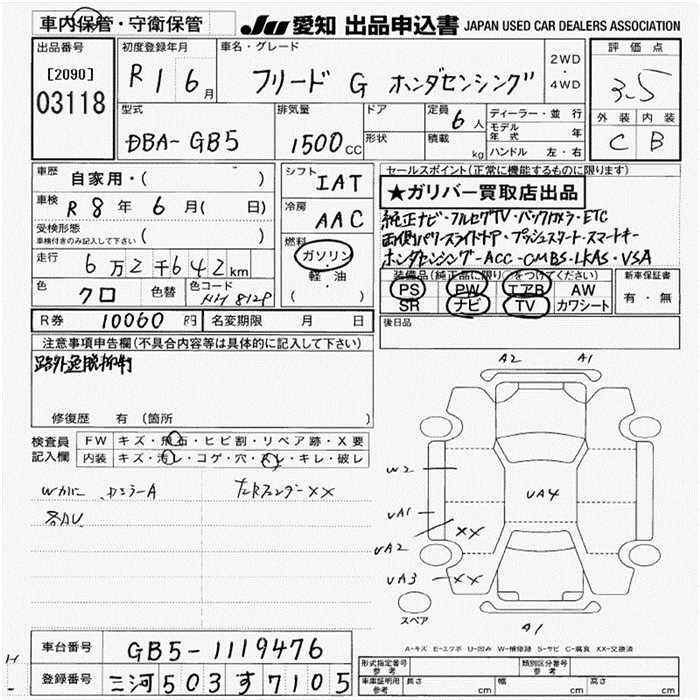 車内保管・守衛保管
JU 愛知 出品申込書 JAPAN USED CAR DEALERS ASSOCIATION
出品番号
[2090]
03118
初度登録年月
R 1 6月
車名・グレード
フリード G ホンダセンシング
2WD
・
4WD
評価点
3.5
外装 内装
C B
型式
DBA-GB5
排気量
1500cc
ドア
形状
定員 6人
積載 kg
ディーラー・並行
モデル年式 年
ハンドル 左・右
車歴 自家用・( )
車検 R 8年 6月( 日)
受検形態
車検付きのみ記入して下さい ( )
走行 6万2千642km
色 クロ 色替 色コード NH 812P
シフト IAT
冷房 AAC
燃料
ガソリン
・
軽・油
( )
セールスポイント(正常に機能するものに限ります)
★ガリバー買取店出品
純正ナビ・フルセグTV・バックカメラ・ETC
両側パワースライドドア・プッシュスタート・スマートキー
ホンダセンシング-ACC-CMBS-LKAS・VSA
装備品(純正品に限り○をつけてください)
PS PW エアB AW
SR ナビ TV カワシート
新車保証書
有・無
R券 10060円 名変期限 月 日
後日品
注意事項申告欄(不具合内容等は具体的に記入して下さい)
路外逸脱抑制
修復歴 有(箇所 )
検査員
記入欄
FW キズ・飛石・ヒビ割・リペア跡・X要
内装 キズ・汚レ・コゲ・穴・スレ・キレ・破レ
Wカバー カミラーA
左Rフェンダー××
各AU
A2 A1
W2
UA4
UA1
××
UA2
UA3
××
スペア
A1
A-キズ E-エクボ U-凹み W-補修跡 S-サビ C-腐食 XX-交換済
車台番号 GB5-1119476
登録番号 三河 503 す 7105
形式指定番号
参考
類別区分番号
参考
車庫証明用
参考
長さ cm 幅 cm 高さ cm